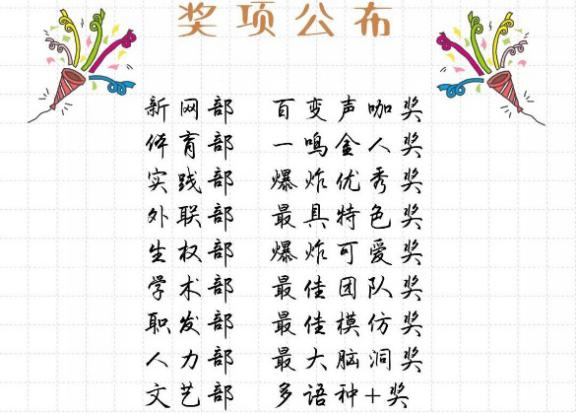 奖项公布
新网部 百变声咖奖
体育部 一鸣金人奖
实践部 爆炸优秀奖
外联部 最具特色奖
生权部 爆炸可爱奖
学术部 最佳团队奖
职发部 最佳模仿奖
人力部 最大脑洞奖
文艺部 多语种+奖